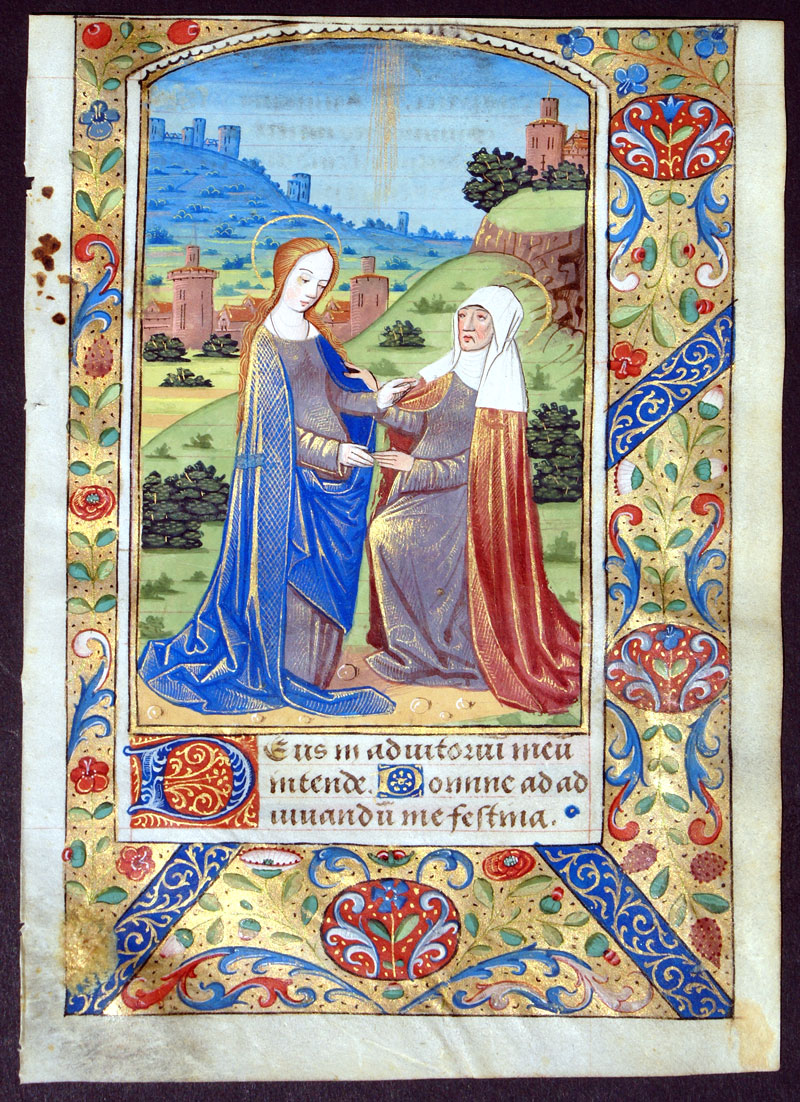 Deus in adiutoriū meū
intende. Domine ad ad
iuuandū me festina.